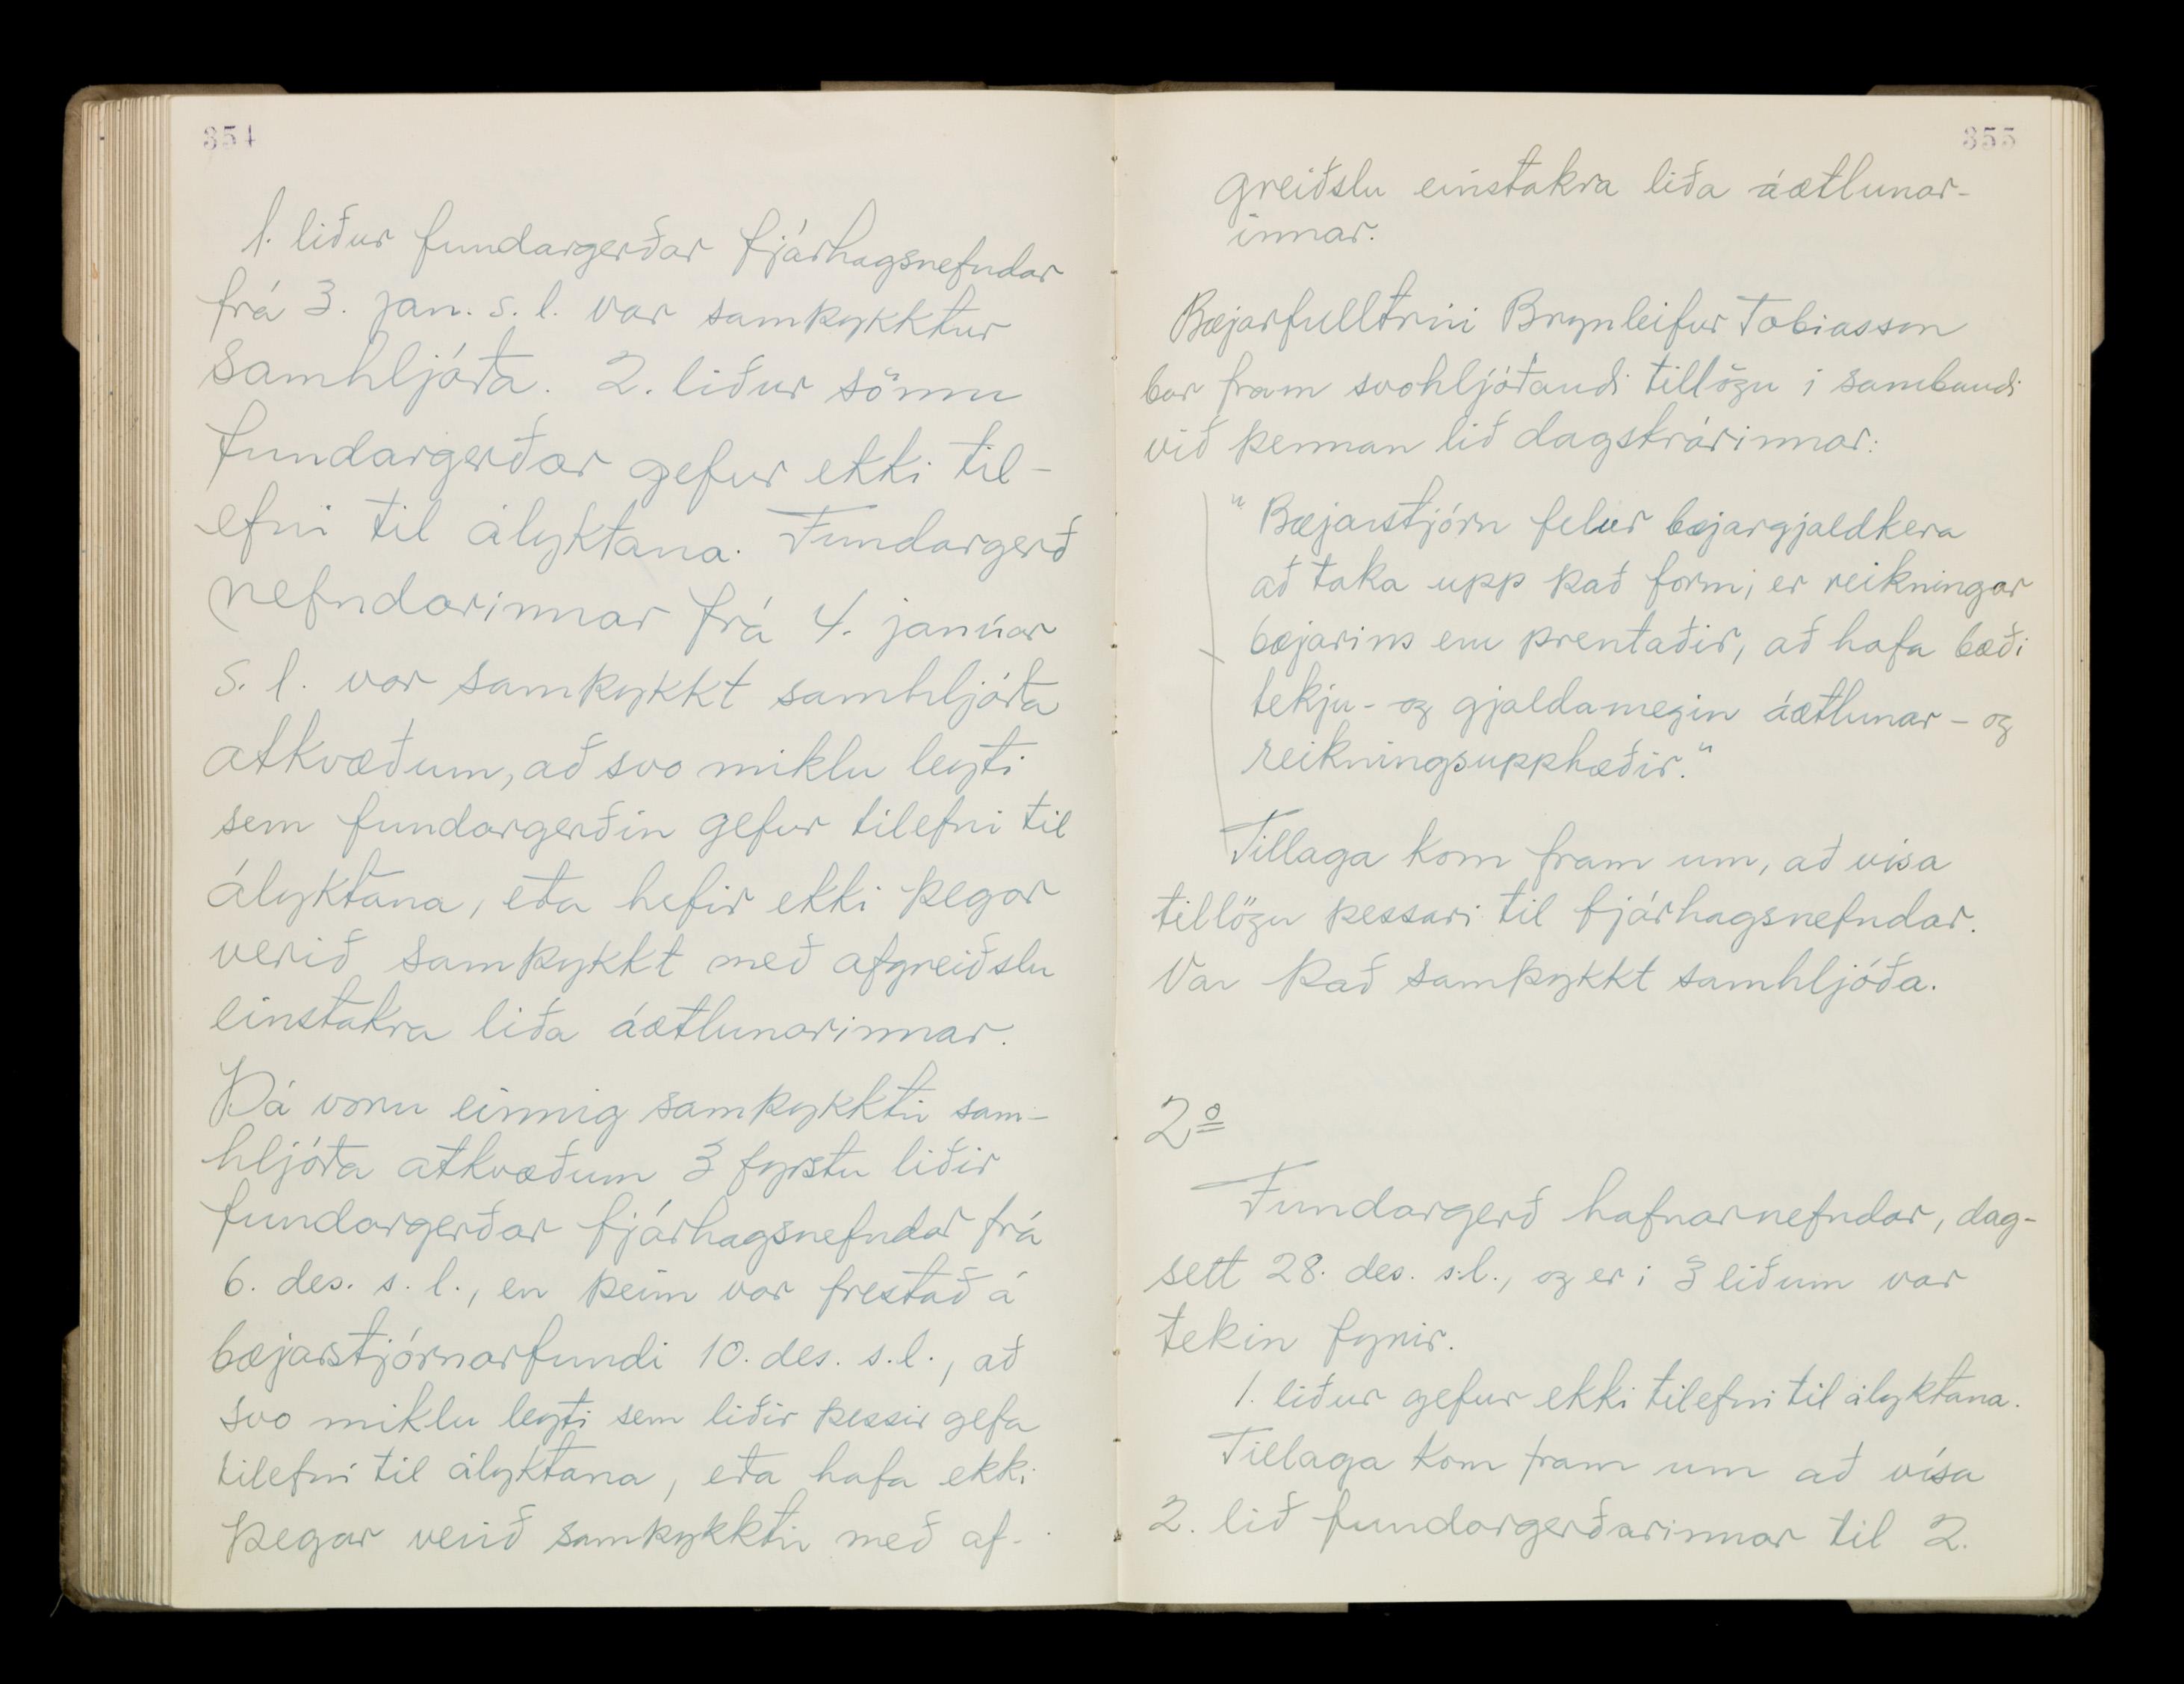 354
1. liður fundargerðar fjárhagsnefndar
frá 3. jan. s.l. var samþykktur
samhljóða. 2. liður sömu
fundargerðar gefur ekki til-
efni til ályktana. Fundargerð
nefndarinnar frá 4. janúar
s.l. var samþykkt samhljóða
atkvæðum, að svo miklu leyti
sem fundargerðin gefur tilefni til
ályktana, eða hefir ekki þegar
verið samþykkt með afgreiðslu
einstakra liða áætlunarinnar.
Þá voru einnig samþykktir sam-
hljóða atkvæðum 3 fyrstu liðir
fundargerðar fjárhagsnefndar frá
6. des. s.l., en þeim var frestað á
bæjarstjórnarfundi 10. des. s.l., að
svo miklu leyti sem liðir þessir gefa
tilefni til ályktana, eða hafa ekki
þegar verið samþykktir með af-
355
greiðslu einstakra liða áætlunar-
innar.
Bæjarfulltrúi Brynleifur Tobiasson
bar fram svohljóðandi tillögu í sambandi
við þennan lið dagskrárinnar:
"Bæjarstjórn felur bæjargjaldkera
að taka upp það form, er reikningar
bæjarins eru prentaðir, að hafa bæði
tekju- og gjaldamegin áætlunar- og
reikningsupphæðir."
Tillaga kom fram um, að vísa
tillögu þessari til fjárhagsnefndar.
Var það samþykkt samhljóða.
2º
Fundargerð hafnarnefndar, dag-
sett 28. des. s.l., og er í 3 liðum var
tekin fyrir.
1. liður gefur ekki tilefni til ályktana.
Tillaga kom fram um að vísa
2. lið fundargerðarinnar til 2.